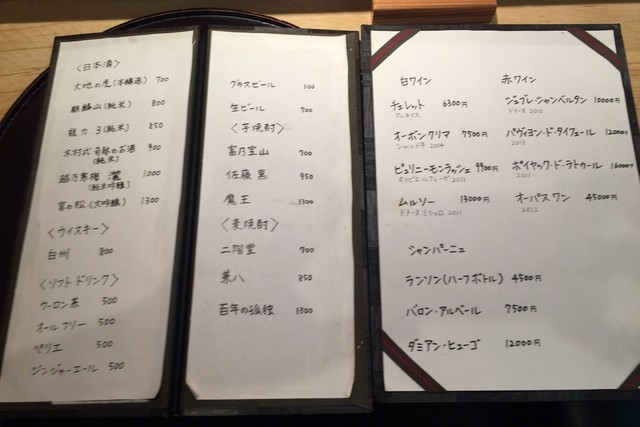 〈日本酒〉
大地の虎(本醸造) 700
麒麟山(純米) 800
龍力 3(純米) 850
木村式奇跡のお酒 900
(純米)
越乃寒梅 灑 1000
(純米吟醸)
宮の松(大吟醸) 1300
〈ウイスキー〉
白州 800
〈ソフトドリンク〉
ウーロン茶 500
オールフリー 500
ペリエ 500
ジンジャーエール 500
グラスビール
生ビール 700
〈芋焼酎〉
富乃宝山 700
佐藤 黒 950
魔王 1300
〈麦焼酎〉
二階堂 700
兼八 850
百年の孤独 1300
白ワイン
チェレット 6300円
アルネイス
オーボンクリマ 7500円
シャルドネ 2014
ピュリニーモンラッシェ 9900円
オリビエルフレーヴ 2013
ムルソー 13000円
ドメーヌ ミショロ 2011
赤ワイン
ジュブレ・シャンベルタン 10000円
ドメーヌ 2010
パヴィヨン・ド・タイフェール 12000円
2013
ポイヤック・ド・ラトゥール 16000円
2013
オーパス ワン 45000円
2012
シャンパーニュ
ランソン(ハーフボトル) 4500円
バロン・アルベール 7500円
ダミアン・ヒューゴ 12000円